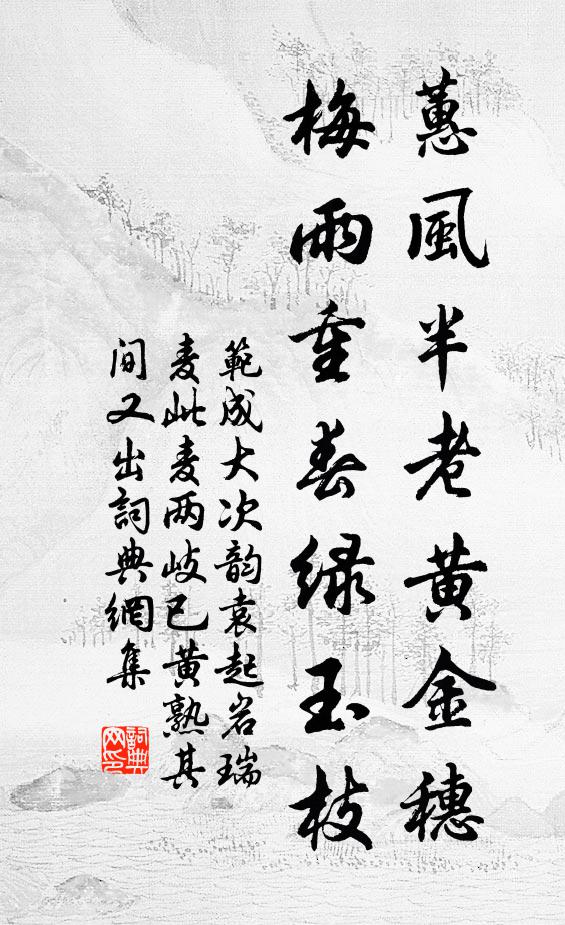 蕙風半老黃金穗
梅雨重春綠玉枝
範成大次韵袁起岩瑞
麦此麦两岐已黄熟其
间又出詞典網集
詞典
网印